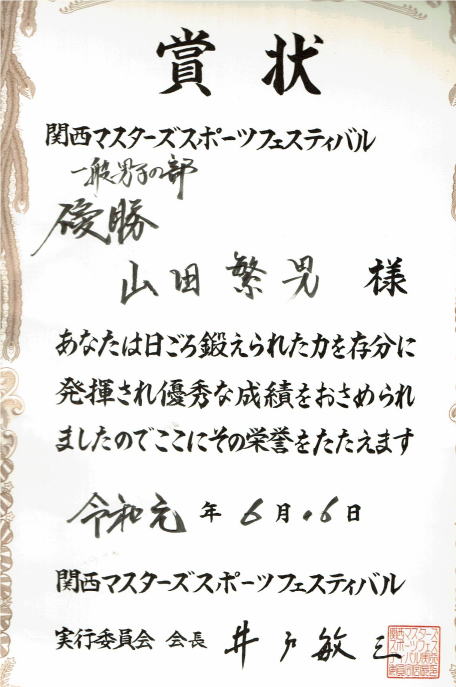 賞状
関西マスターズスポーツフェスティバル
一般男子の部
優勝
山田繁男 様
あなたは日ごろ鍛えられた力を存分に
発揮され優秀な成績をおさめられ
ましたのでここにその栄誉をたたえます
令和元年6月16日
関西マスターズスポーツフェスティバル
実行委員会 会長 井戸敏三